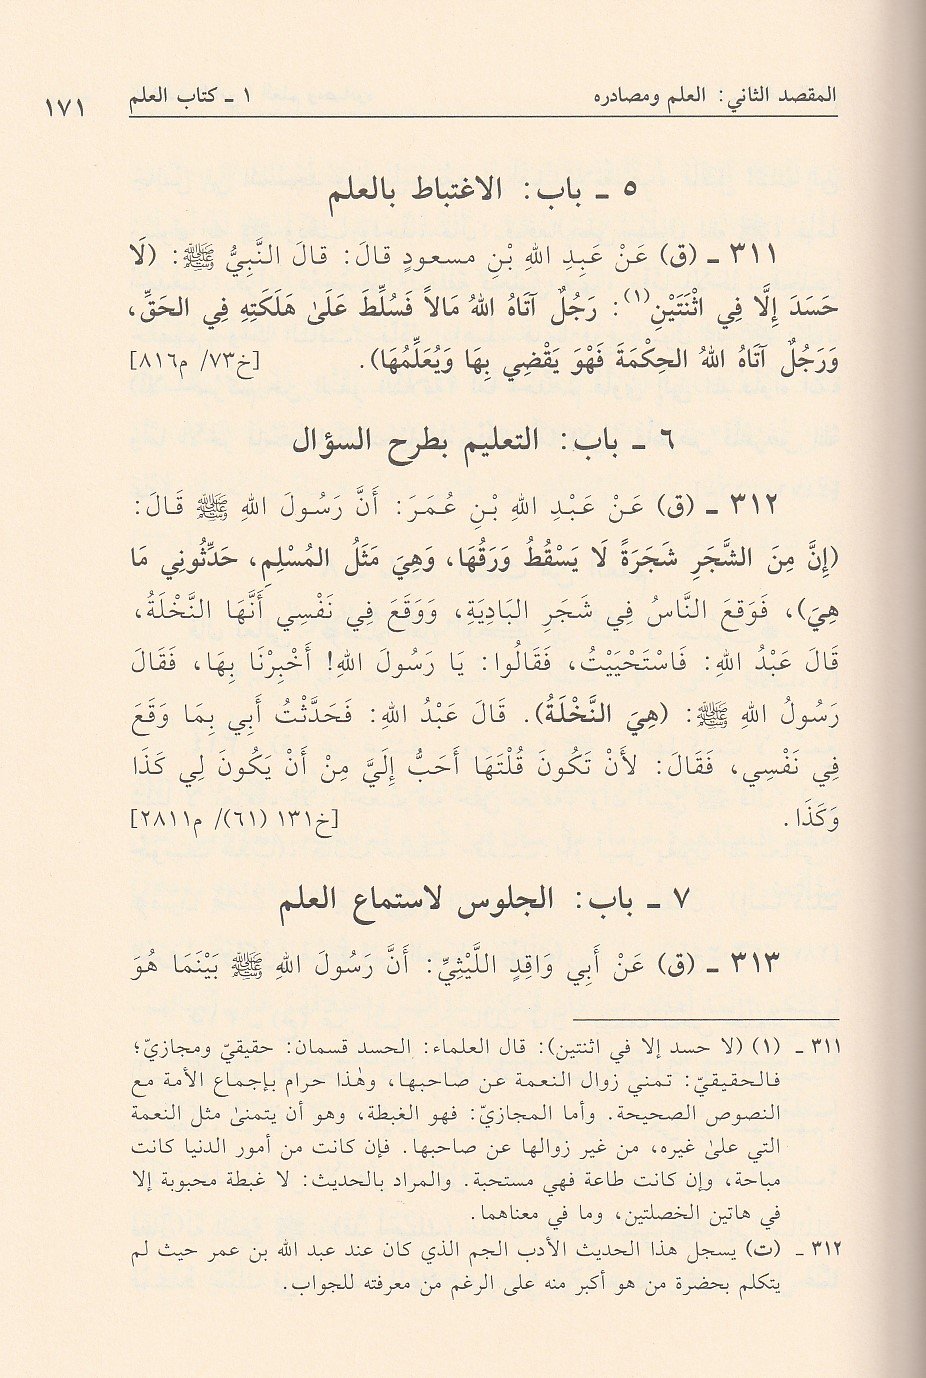 المقصد الثاني: العلم ومصادره
١ ـ كتاب العلم
١٧١
٥ ـ باب: الاغتباط بالعلم
٣١١ ـ (ق) عَنْ عَبِدِ اللهِ بْنِ مسعودٍ قالَ: قالَ النَّبِيُّ ﷺ: (لَا
حَسَدَ إِلَّا فِي اثْنَتَيْنِ(١): رَجُلٌ آتَاهُ اللهُ مَالاً فَسُلِّطَ عَلَىٰ هَلَكَتِهِ فِي الحَقِّ،
وَرَجُلٌ آتَاهُ اللهُ الحِكْمَةَ فَهْوَ يَقْضِي بِهَا وَيُعَلِّمُهَا). [خ٧٣/ م٨١٦]
٦ ـ باب: التعليم بطرح السؤال
٣١٢ ـ (ق) عَنْ عَبْدِ اللهِ بْنِ عُمَرَ: أَنَّ رَسُولَ اللهِ ﷺ قَالَ:
(إِنَّ مِنَ الشَّجَرِ شَجَرَةً لَا يَسْقُطُ وَرَقُهَا، وَهِيَ مَثَلُ المُسْلِمِ، حَدِّثُونِي مَا
هِيَ)، فَوَقعَ النَّاسُ فِي شَجَرِ البَادِيَةِ، وَوَقَعَ فِي نَفْسِي أَنَّهَا النَّخْلَةُ،
قَالَ عَبْدُ اللهِ: فَاسْتَحْيَيْتُ، فَقَالُوا: يَا رَسُولَ اللهِ! أَخْبِرْنَا بِهَا، فَقَالَ
رَسُولُ اللهِ ﷺ: (هِيَ النَّخْلَةُ). قَالَ عَبْدُ اللهِ: فَحَدَّثْتُ أَبِي بِمَا وَقَعَ
فِي نَفْسِي، فَقَالَ: لأَنْ تَكُونَ قُلْتَهَا أَحَبُّ إِلَيَّ مِنْ أَنْ يَكُونَ لِي كَذَا
وَكَذَا. [خ١٣١ (٦١)/ م٢٨١١]
٧ ـ باب: الجلوس لاستماع العلم
٣١٣ ـ (ق) عَنْ أَبِي وَاقِدٍ اللَّيْثِيِّ: أَنَّ رَسُولَ اللهِ ﷺ بَيْنَمَا هُوَ
٣١١ ـ (١) (لا حسد إلا في اثنتين): قال العلماء: الحسد قسمان: حقيقيّ ومجازيّ؛
فالحقيقيّ: تمني زوال النعمة عن صاحبها، وهٰذا حرام بإجماع الأمة مع
النصوص الصحيحة. وأما المجازيّ: فهو الغبطة، وهو أن يتمنىٰ مثل النعمة
التي علىٰ غيره، من غير زوالها عن صاحبها. فإن كانت من أمور الدنيا كانت
مباحة، وإن كانت طاعة فهي مستحبة. والمراد بالحديث: لا غبطة محبوبة إلا
في هاتين الخصلتين، وما في معناهما.
٣١٢ ـ (ت) يسجل هذا الحديث الأدب الجم الذي كان عند عبد الله بن عمر حيث لم
يتكلم بحضرة من هو أكبر منه على الرغم من معرفته للجواب.